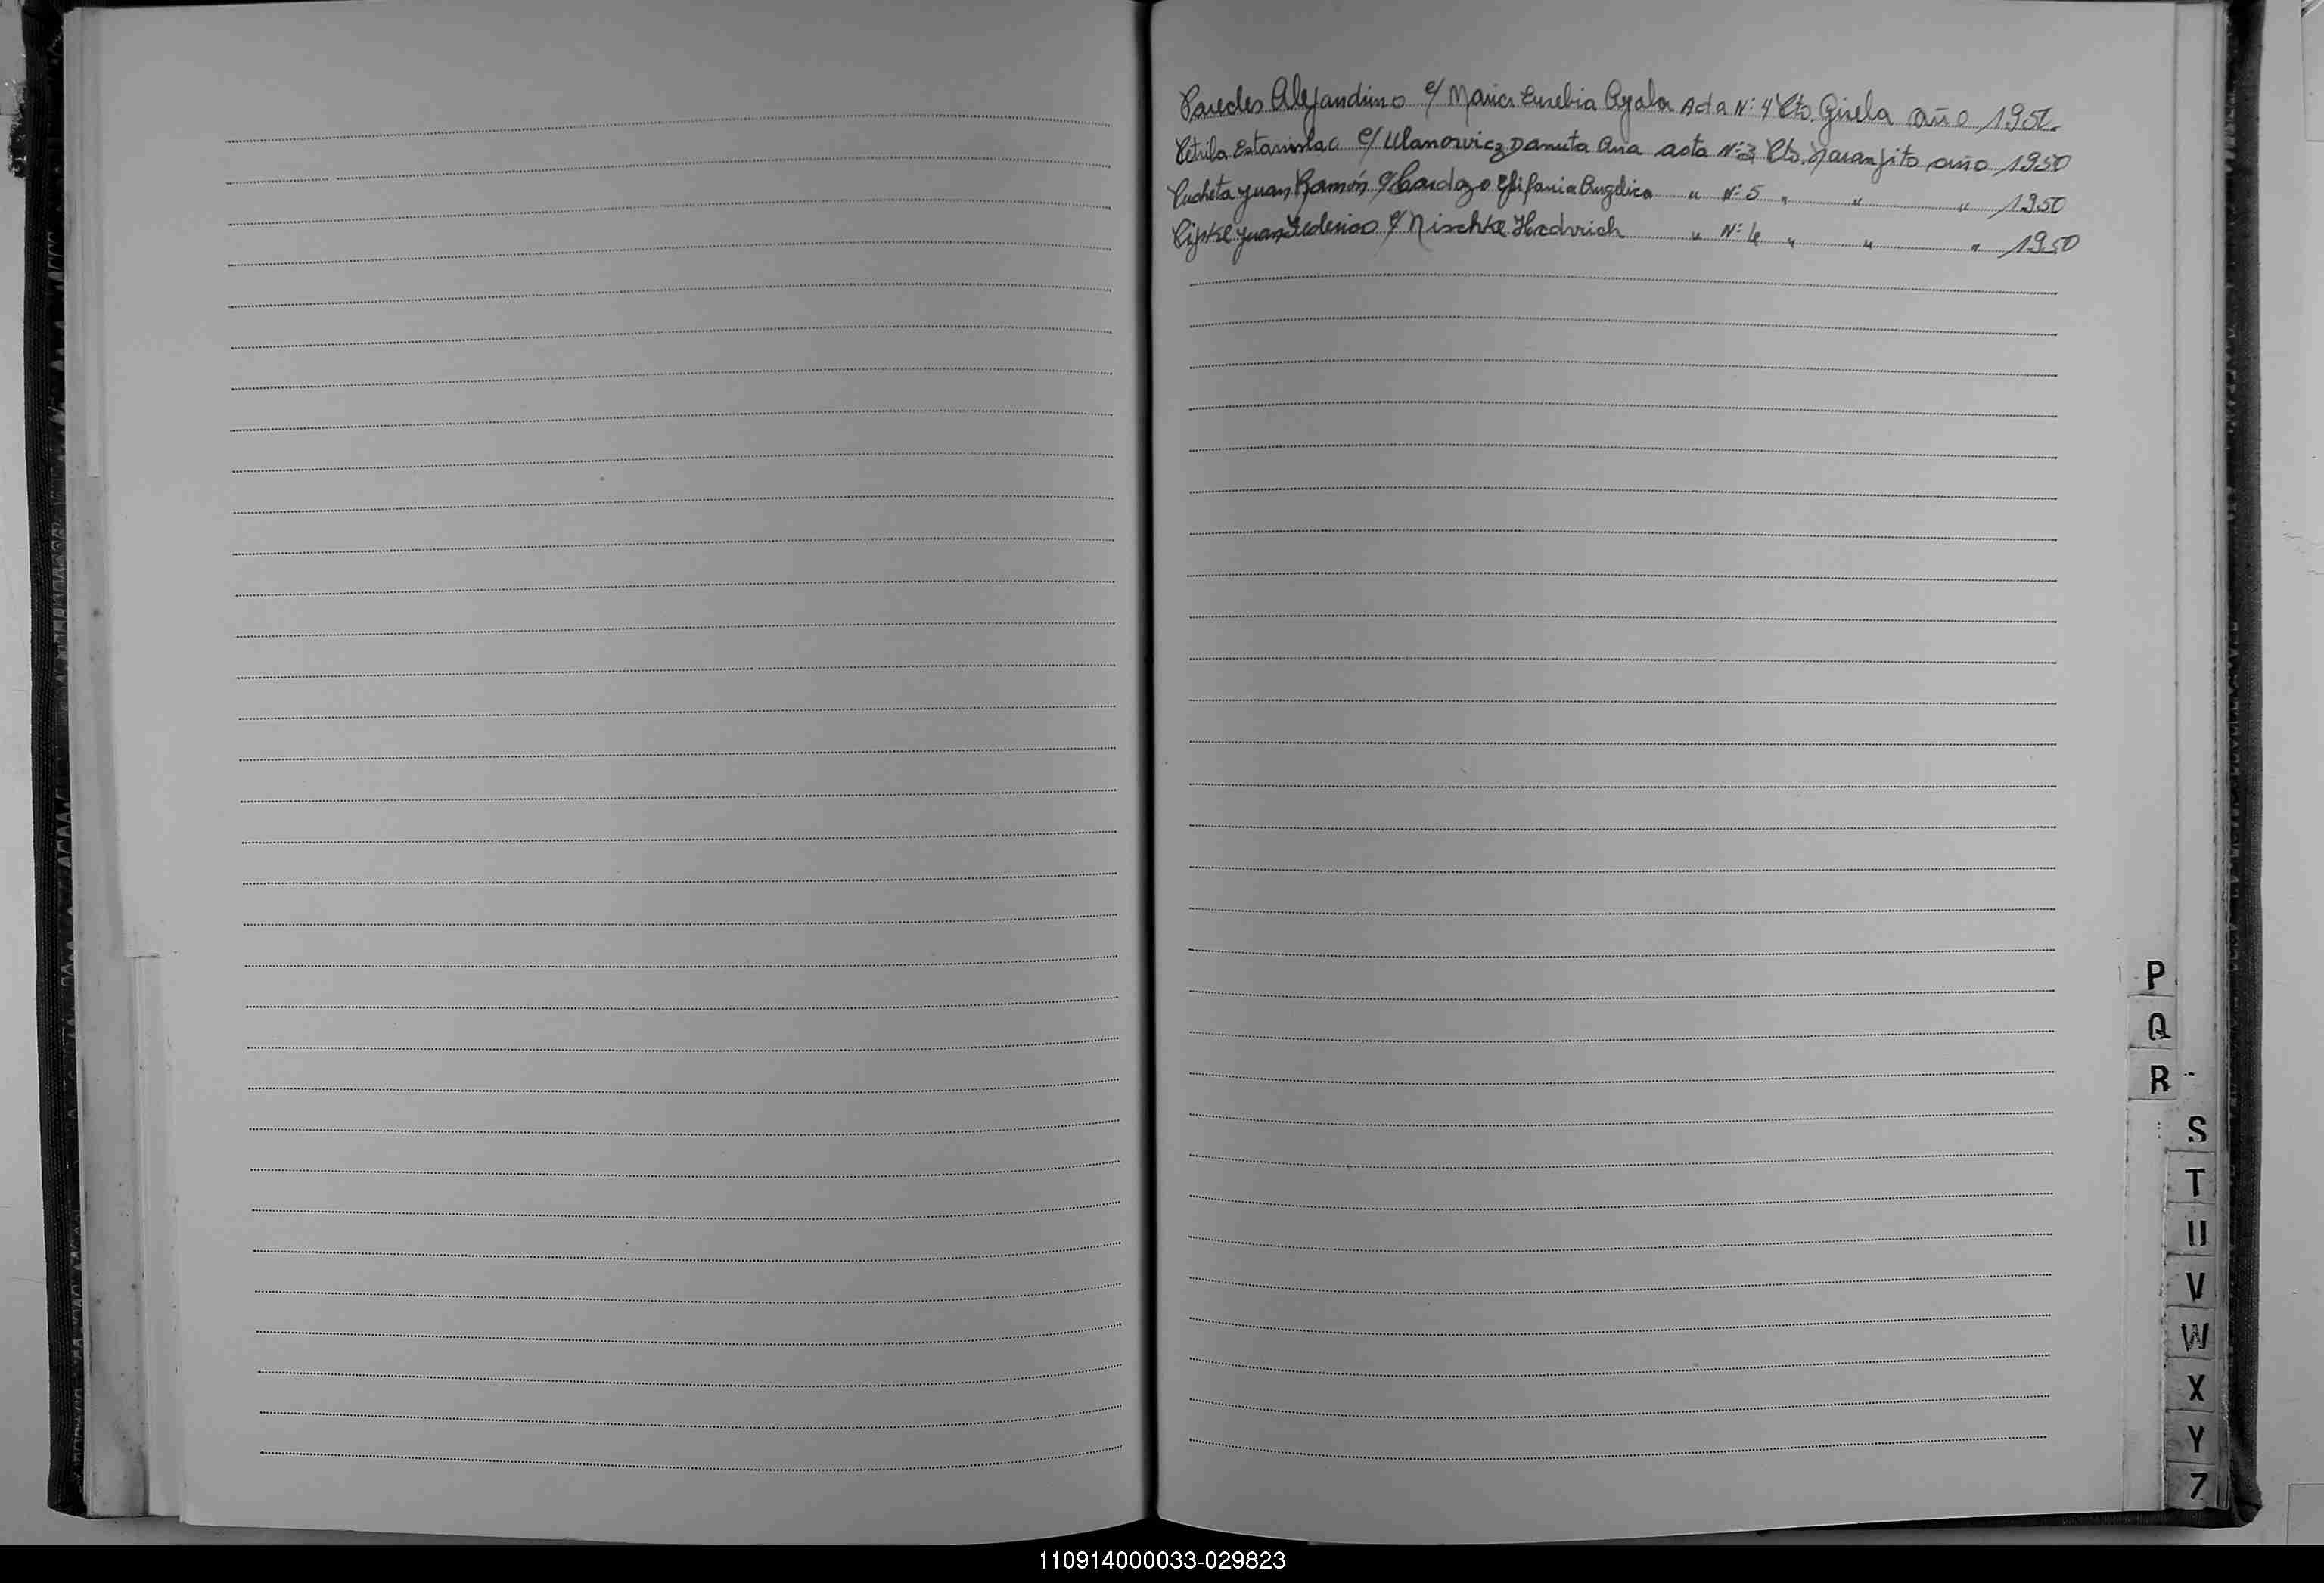 Paredes Alejandrino c/ Maria Eusebia Ayala Acta N: 4 Pto. Gisela año 1950.
Petrila Estanislao c/ Ulanowicz Danuta Ana acta N: 3 Pto. Naranjito año 1950
Pucheta Juan Ramón c/ Cardozo Epifania Angélica " N: 5 " " " 1950
Pipke Juan Federico c/ Nischke Hedwich " N: 4 " " " 1950
P
Q
R
S
T
U
V
W
X
Y
Z
110914000033-029823